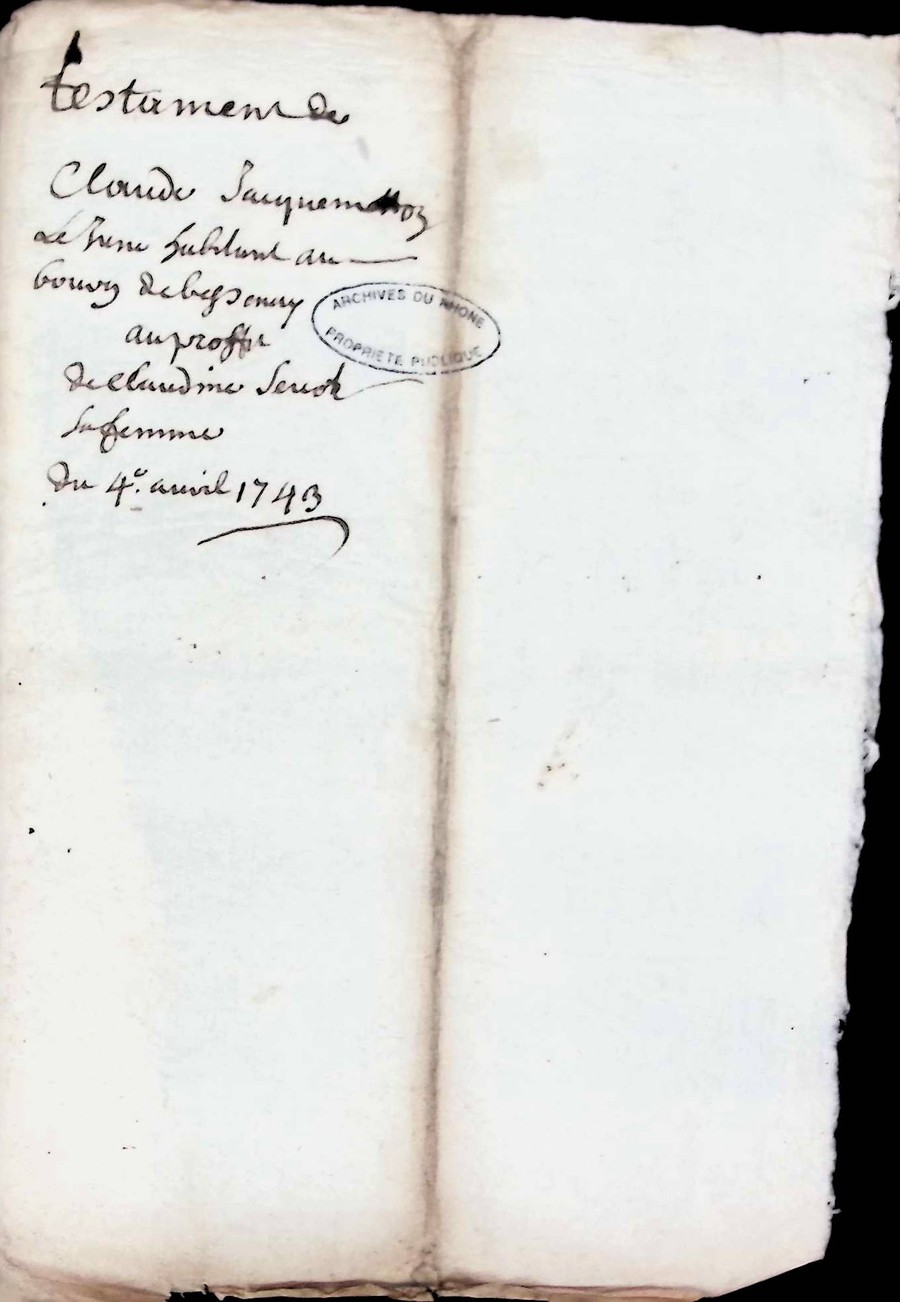 testament de
Claude Jacquemetton
Le Jeune habitant au
bourg de bessenay
au proffit
de Claudine
sa femme
du 4e. avril 1743
ARCHIVES DU RHONE
PROPRIETE PUBLIQUE